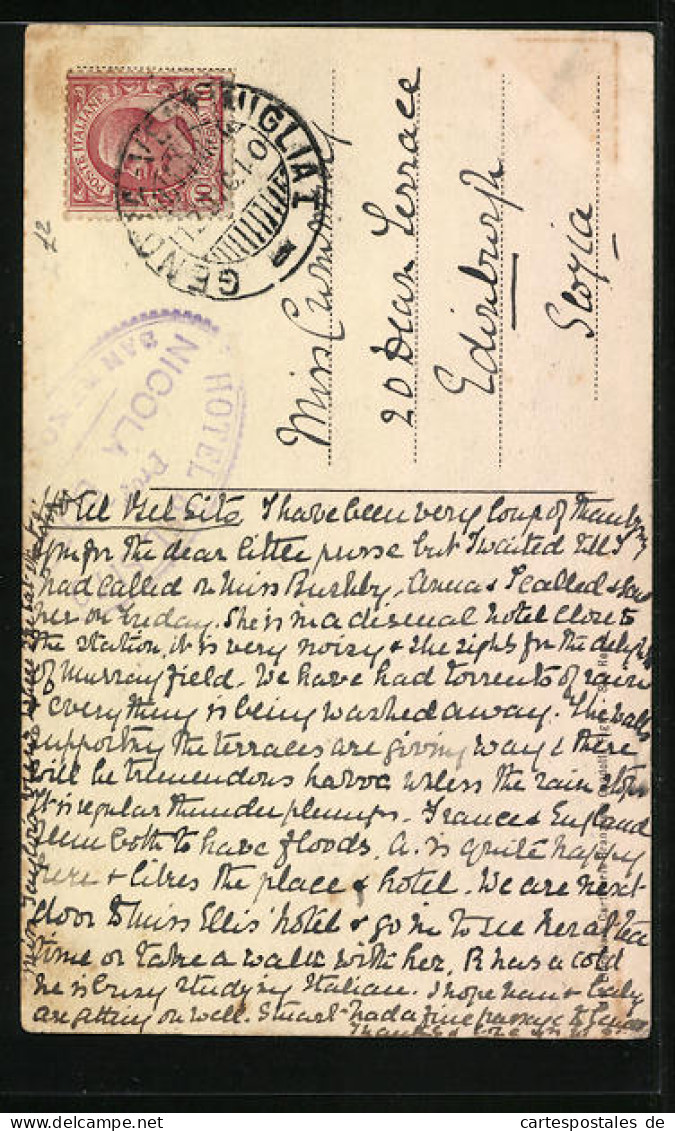 POSTE ITALIANE
10
10
GENOVA-VENTIMIGLIA 1
£2
HOTEL
NICOLA
SAN
Prop
Miss
20 Dean Terrace
Edinburgh
Hotel Bel Site I have been very long of thanking
you for the dear little purse but I waited till I
had called on Miss Bushby. Anna & I called &
her on Friday. She is in a dismal hotel close to
the station, it is very noisy & she sighs for the delights
of Murrayfield. We have had torrents of rain
& everything is being washed away. The walls
supporting the terraces are giving way & there
will be tremendous havoc unless the rain stops
It is regular thunder plumps. France & England
seem both to have floods. A. is quite happy
here & likes the place & hotel. We are next
door to Miss Ellis' hotel & go in to see her at tea
time or take a walk with her. R has a cold
he is busy studying Italian. I hope &
are getting on well. Stuart had a fine passage to
Thanks & love
cartespostales.de